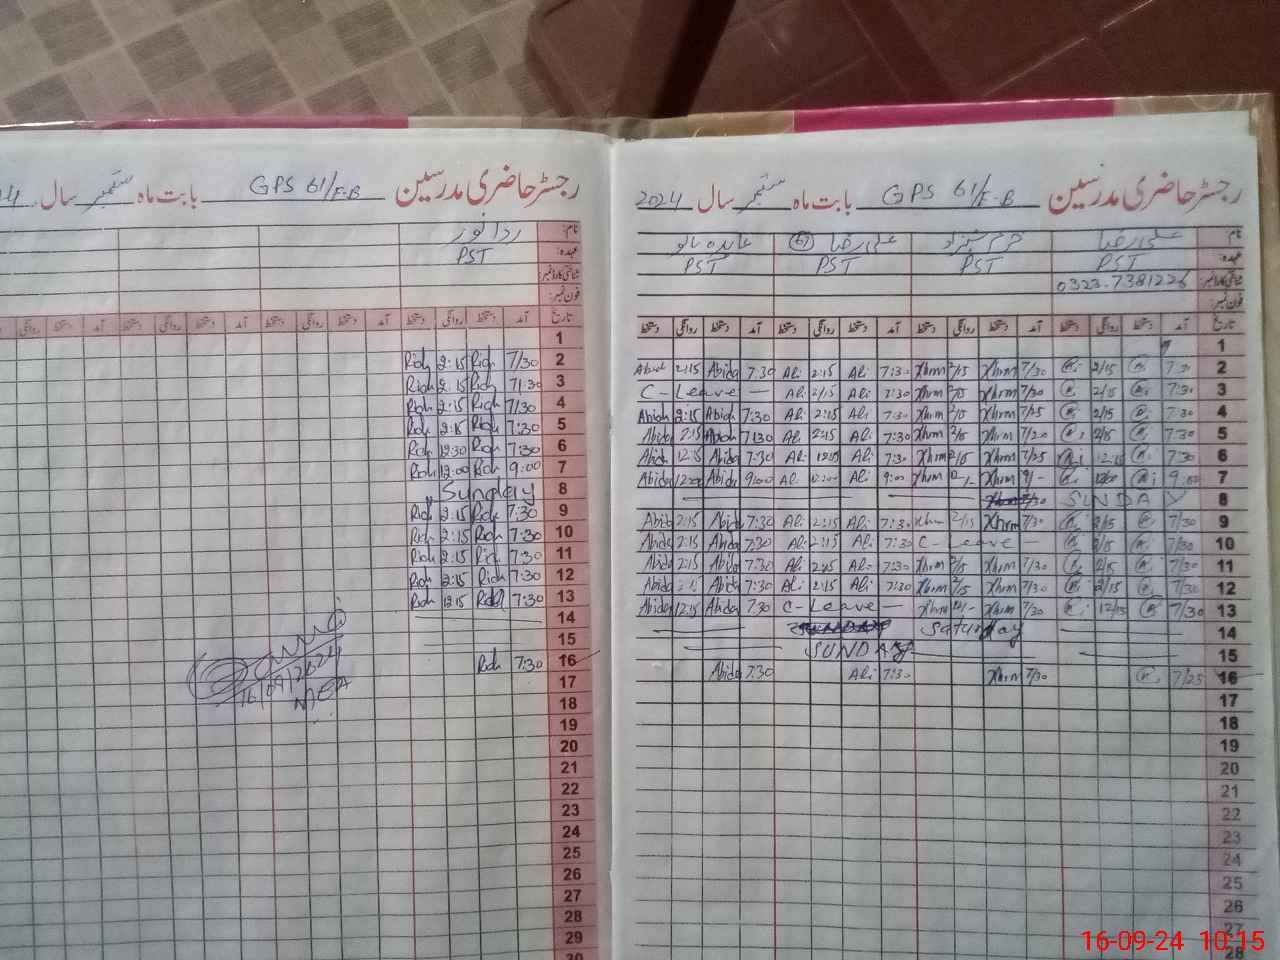 رجسٹر حاضری مدرسین GPS 61/E-B بابت ماہ ستمبر سال 2024
نام: علی رضا خرم شہزاد علی رضا عابدہ بانو
عہدہ: PST PST PST PST
شناختی کارڈ نمبر: 0323-7381226
فون نمبر:
تاریخ آمد دستخط روانگی دستخط آمد دستخط روانگی دستخط آمد دستخط روانگی دستخط آمد دستخط روانگی دستخط
1
Abida 2:15 Abida 7:30 Ali 2:15 Ali 7:30 Xhrm 2/15 Xhrm 7/30 2/15 7:30 2
C-Leave — Ali 2/15 Ali 7:30 Xhrm 2/15 Xhrm 7/30 2/15 7:30 3
Abida 2:15 Abida 7:30 Ali 2:15 Ali 7:30 Xhrm 2/15 Xhrm 7/25 2/15 7:30 4
Abida 2:15 Abida 7:30 Ali 2:15 Ali 7:30 Xhrm 2/15 Xhrm 7/20 2/15 7:30 5
Abida 12:15 Abida 7:30 Ali Ali 7:30 Xhrm Xhrm 7/25 12:15 7:30 6
Abida 12:00 Abida 9:00 Ali 12:00 Ali 9:00 Xhrm Xhrm 9/- 9:00 7
SUNDAY 8
Abida 2:15 Abida 7:30 Ali 2:15 Ali 7:30 Xhrm 2/15 Xhrm 7/30 2/15 7/30 9
Abida 2:15 Abida 7:30 Ali 2:15 Ali 7:30 C-Leave — 2/15 7/30 10
Abida 2:15 Abida 7:30 Ali 2:15 Ali 7:30 Xhrm 2/15 Xhrm 7/30 2/15 7/30 11
Abida Abida 7:30 Ali 2:15 Ali 7:30 Xhrm 2/15 Xhrm 7/30 2/15 7/30 12
Abida 12:15 Abida 7:30 C-Leave — Xhrm Xhrm 7/30 12/15 7/30 13
Saturday 14
SUNDAY 15
Abida 7:30 Ali 7:30 Xhrm 7/30 7/25 16
17
18
19
20
21
22
23
24
25
26
27
28
رجسٹر حاضری مدرسین GPS 61/E-B بابت ماہ ستمبر سال 24
نام: ردا نور
عہدہ: PST
شناختی کارڈ نمبر:
فون نمبر:
تاریخ آمد دستخط روانگی دستخط آمد دستخط روانگی دستخط آمد دستخط روانگی دستخط آمد
1
Rida 2:15 Rida 7/30 2
Rida 2:15 Rida 7:30 3
Rida 2:15 Rida 7/30 4
Rida 2:15 Rida 7:30 5
Rida 12:30 Rida 7:30 6
Rida 12:00 Rida 9:00 7
Sunday 8
Rida 2:15 Rida 7:30 9
Rida 2:15 Rida 7:30 10
Rida 2:15 Rida 7:30 11
Rida 2:15 Rida 7:30 12
Rida 12:15 Rida 7:30 13
14
15
Rida 7:30 16
16/09/2024
17
18
19
20
21
22
23
24
25
26
27
28
29
30
16-09-24 10:15